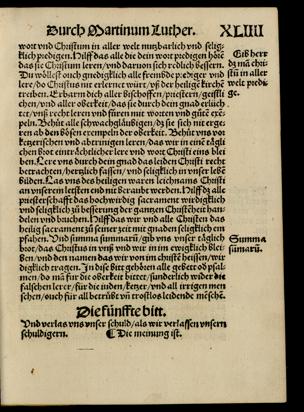 Durch Martinum Luther. XLIIII
wort vnd Christum in aller welt nutzbarlich vnd selig-
klich predigen. Hilff das alle die dein wort predigen hörē
das sie Christum leren/ vnd daruon sich redlich bessern.
Du wöllest ouch gnedigklich alle frembde prediger vnd
lere/ do Christus nit erlernet würt/ vß der heilige kirchē
treiben. Erbarm dich aller bischoffen/ priester/ geistli
chen/ vnd aller oberkeit/ das sie durch dein gnad erlüch
tet/ vns recht leren vnd füren mit worten vnd gůtē exē-
peln. Behüt alle schwachgläubigen/ dz sie sich nit erge-
ren ab den bösen exempeln der oberkeit. Behüt vns vor
ketzerischen vnd abtrennigen leren/ das wir in eine tägli
chen brot einträchtlicher lere vnd wort Christi eins blei
ben. Lere vns durch dein gnad das leiden Christi recht
betrachten/ hertzlich fassen/ vnd seligklich in vnser lebē
bilden. Las vns des heiligen waren leichnams Christi
an vnserem letsten end nit beraubet werden. Hilff dz alle
priesterschafft das hochwirdig sacrament wirdigklich
vnd seligklich zů besserung der gantzen Christēheit han-
delen vnd buchen. Hilff das wir vnd alle Christen das
heilig sacrament zů seiner zeit mit gnaden seligklich em
pfahen. Vnd summa summarū/ gib vns vnser täglich
brot/ das Christus in vns vnd wir in im ewigklich blei-
ben/ vnd den namen das wir von im Christē heissen/ wir
digklich tragen. In dise bitt gehören alle gebet vnd psal-
men/ do mā für die oberkeit bittet/ sunderlich wider die
falschen lerer/ für die iuden/ ketzer/ vnd all irrigen men
schen/ ouch für all betrübt vn̄ trostlos leidende mēschē.
Gib herr
dz mā chri-
stū in aller
welt predi-
ge.
Summa
sumarū.
Die fünffte bitt.
Vnd verlas vns vnser schuld/ als wir verlassen vnsern
schuldigern. ¶ Die meinung ist.